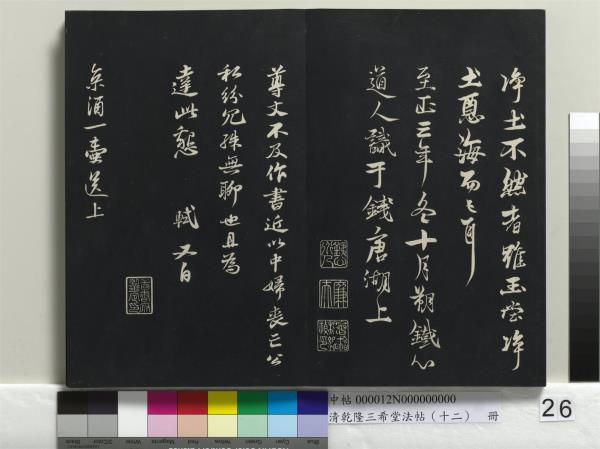 净土不然者雖玉瑩净
土惡海而已耳
至正三年冬十月朔鐵心
道人識于錢唐湖上
尊丈不及作書近以中婦喪亡公
私紛冗殊無聊也且為
達此懇 軾又白
京酒一壺送上
中帖 000012N000000000
清乾隆三希堂法帖（十二） 冊
26